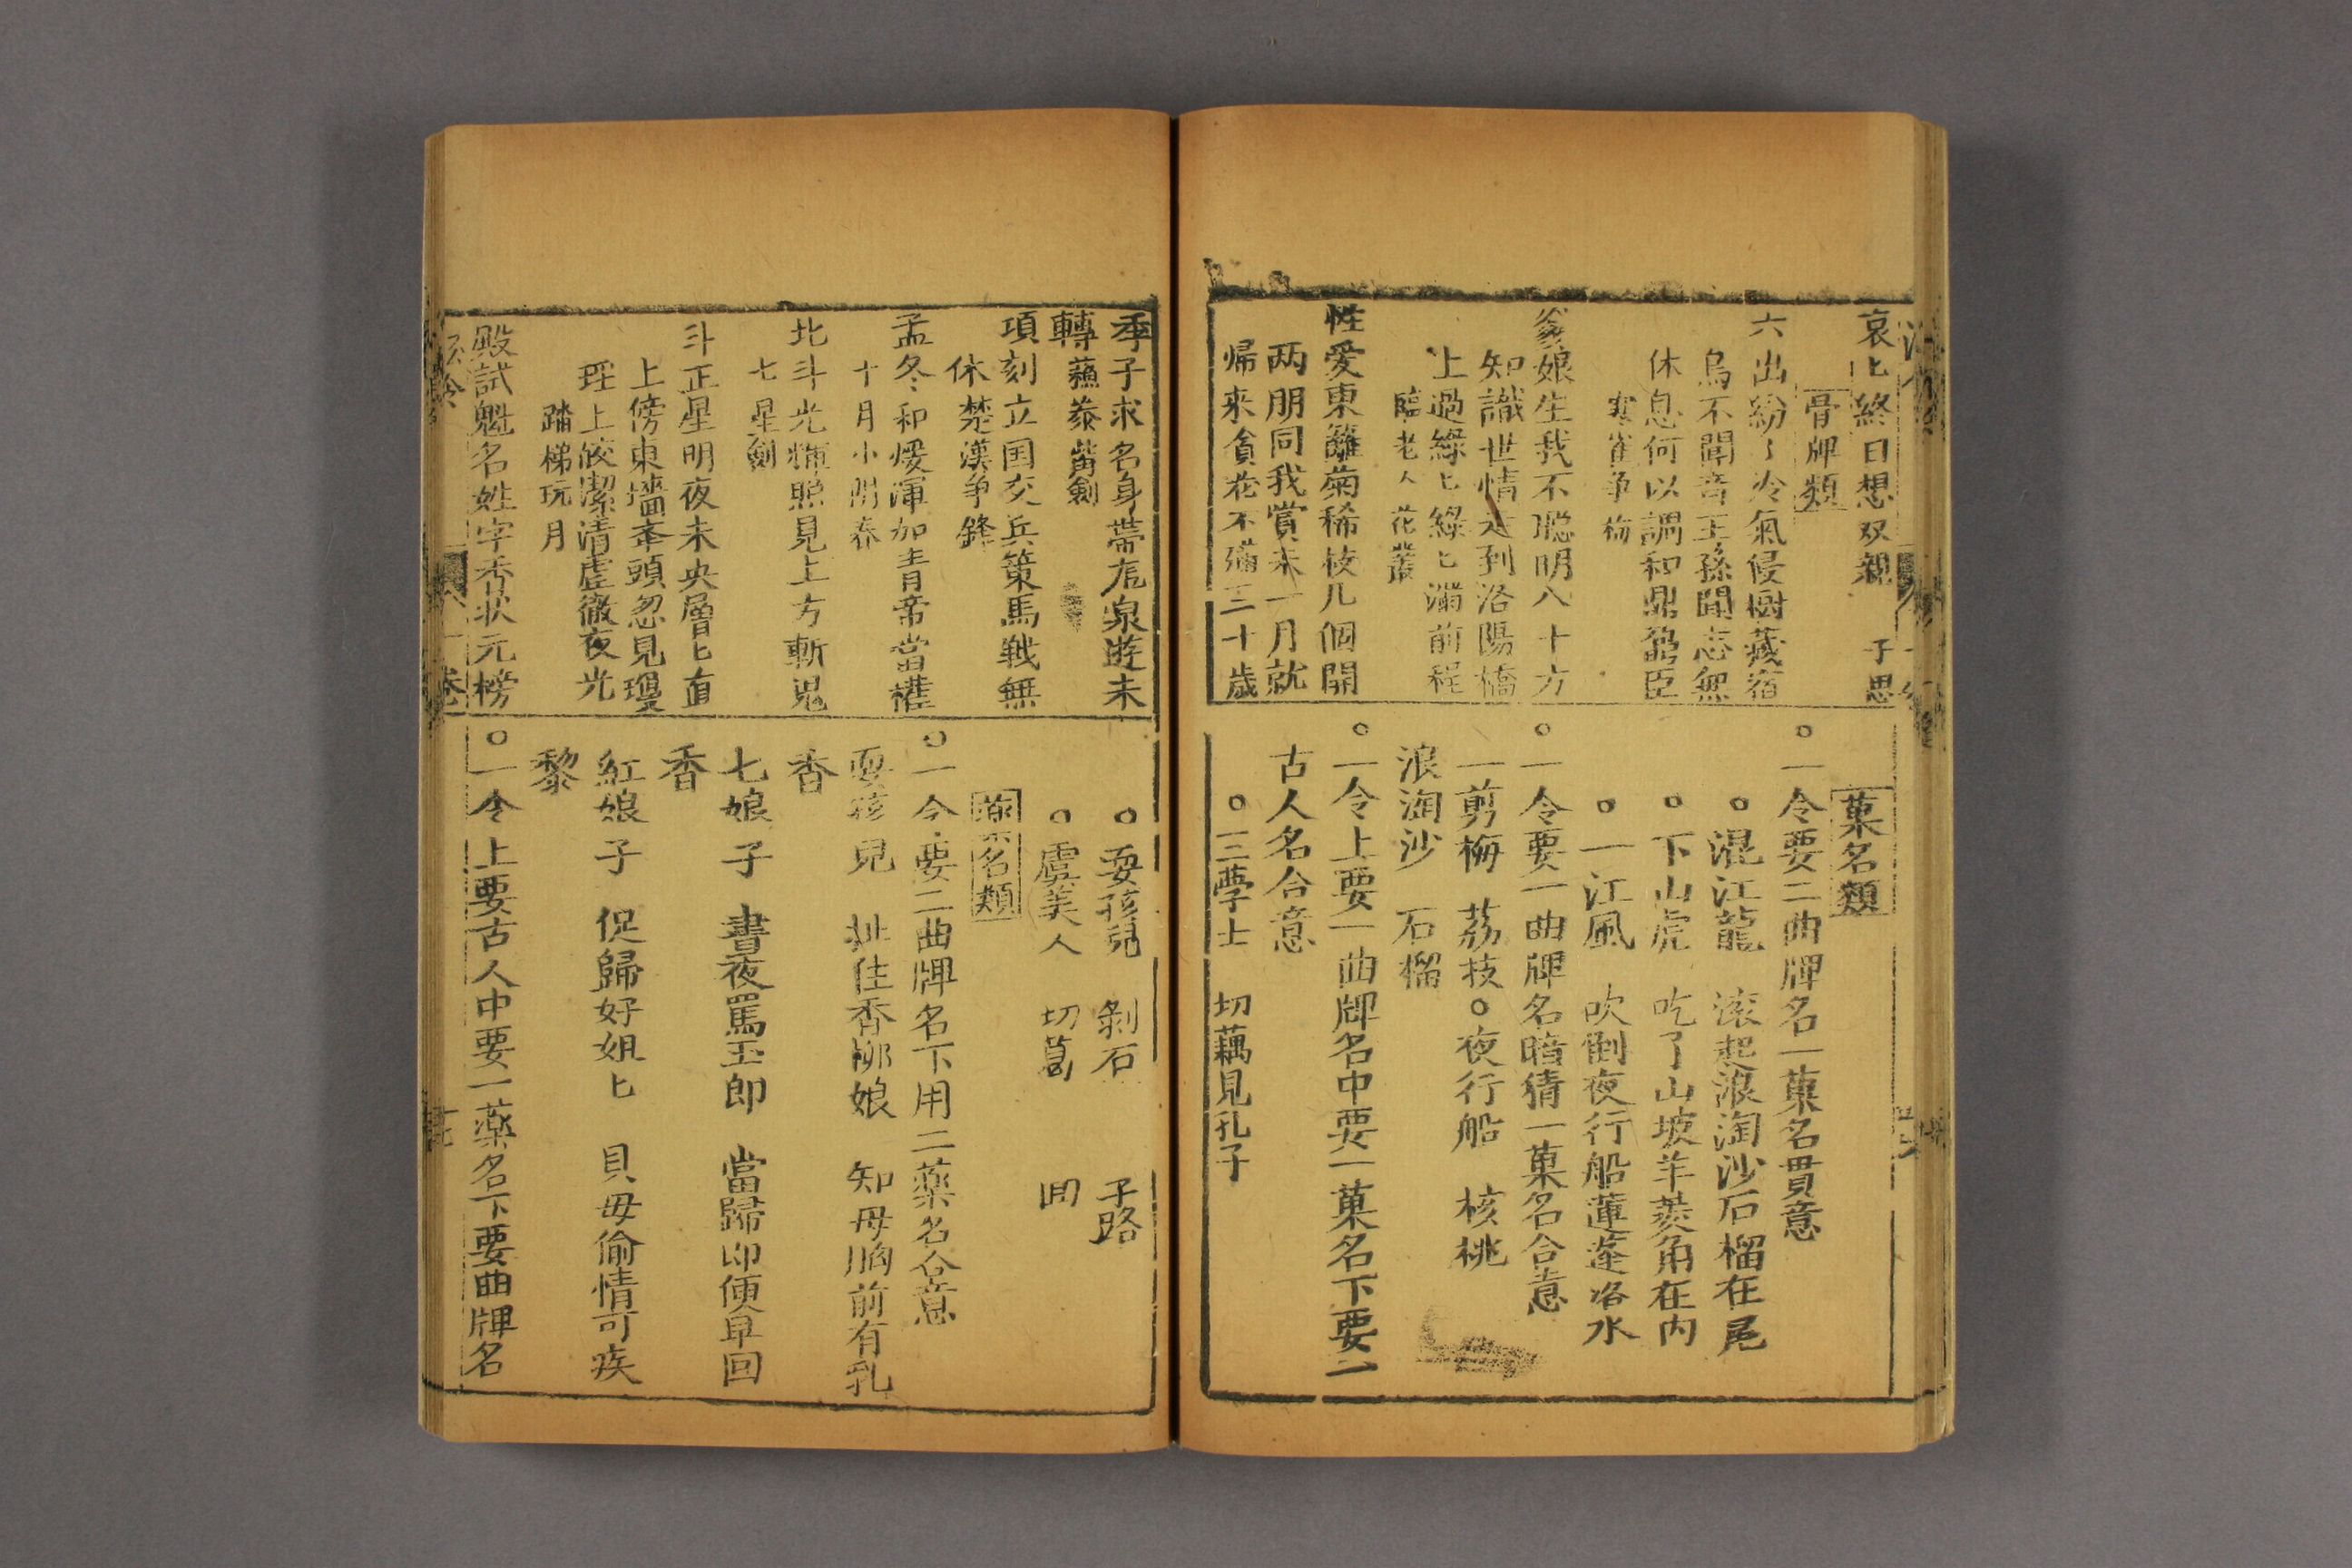 哀匕終日想双親 子思
骨牌類
六出紛〻冷氣侵樹藏宿
鳥不聞音王孫聞志無
休息何以調和鼎鼐臣
寒雀争梅
爹娘生我不聪明八十方
知識世情走到洛陽橋
上過綠匕綠匕滿前程
臨老人花叢
性愛東籬菊稀枝几個開
两朋同我賞未一月就
帰来貪花不滿三十歲
菓名類
○一令要二曲牌名一菓名貫意
○混江龍 滚起浪淘沙石榴在尾
○下山虎 吃了山坡羊菱角在内
○一江風 吹倒夜行船蓮蓬落水
○一令要一曲牌名暗猜一菓名合意
一剪梅 荔枝○夜行船 核桃
浪淘沙 石榴
○一令上要一曲牌名中要一菓名下要一
古人名合意
○三學士 切藕見孔子
季子求名身帶厐泉遊未
轉蘓蓁背劍
項刻立国交兵策馬戦無
休楚漢争鋒
孟冬和煖渾如青帝當權
十月小陽春
北斗光輝照見上方斬鬼
七星劍
斗正星明夜未央層匕直
上傍東墻牽頭忽見瓊
珄上皎潔清虚徹夜光
踏梯玩月
殿試魁名姓字香状元榜
○耍孩兒 剝石 子路
○虞美人 切菖 囬
薬名類
○一令要二曲牌名下用二薬名合意
耍孩兒 扯住香柳娘 知母胸前有乳
香
七娘子 晝夜罵玉郎 當歸即便早回
香
紅娘子 促歸好姐匕 貝母偷情可疾
黎
○一令上要古人中要一薬名下要曲牌名